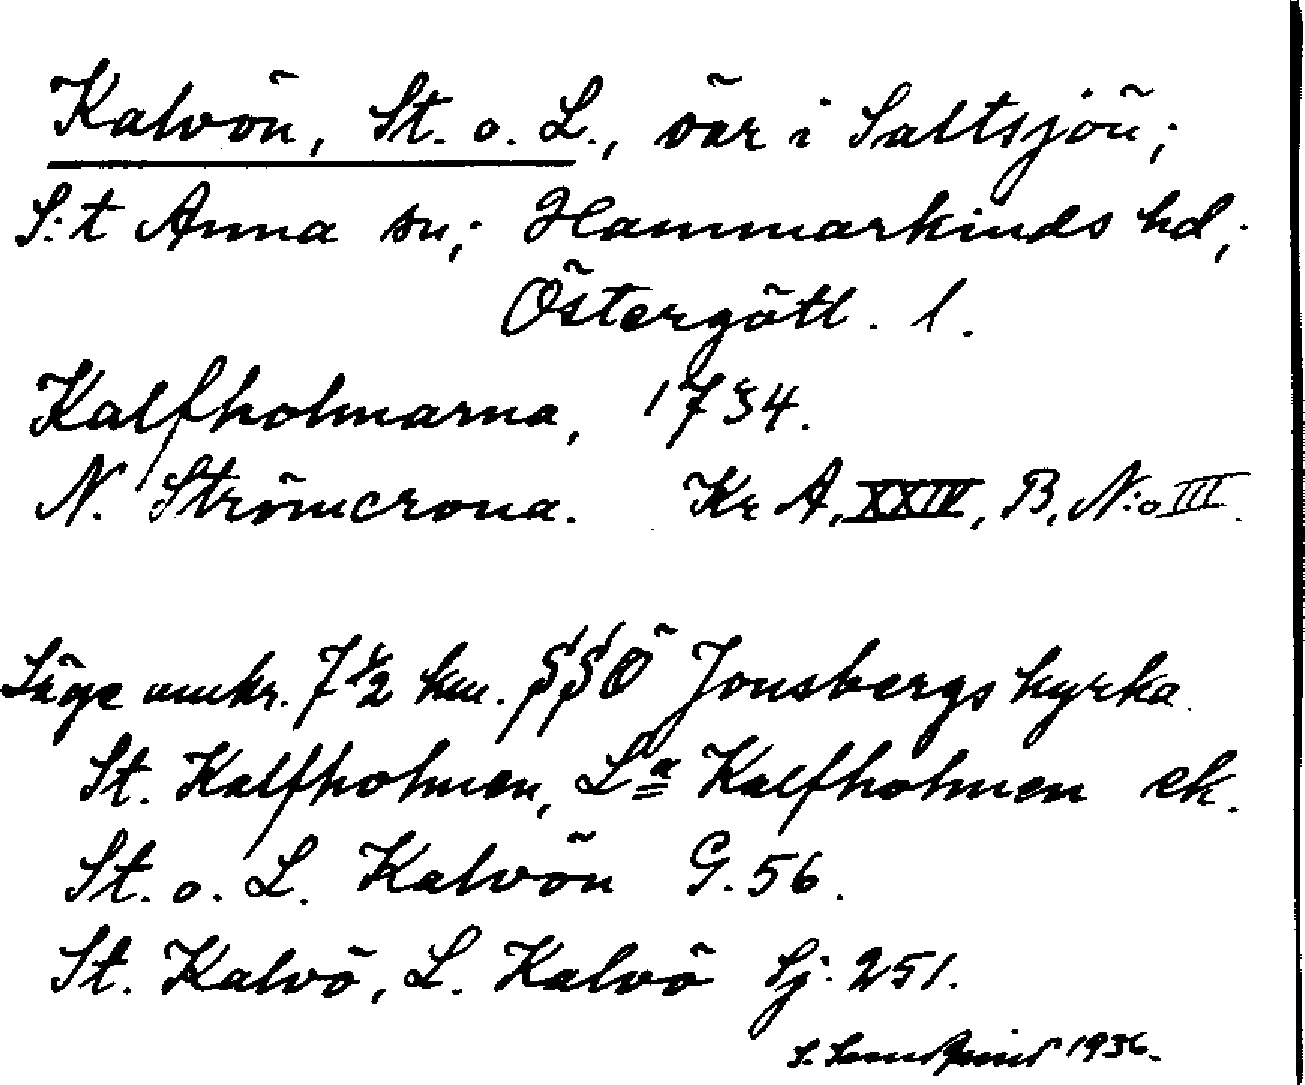 Kalvön, St. o. L., öar i Saltsjön;
S:t Anna sn; Hammarkinds hd;
Östergötl. l.
Kalfholmarna, 1734.
N. Strömcrona. Kr A, XXIV, B, N:o III.
Läge omkr. 7 1/2 km. SSÖ Jonsbergs kyrka.
St. Kalfholmen, La Kalfholmen ek.
St. o. L. Kalvön G. 56.
St. Kalvö, L. Kalvö Sj. 251.
S. 1936.